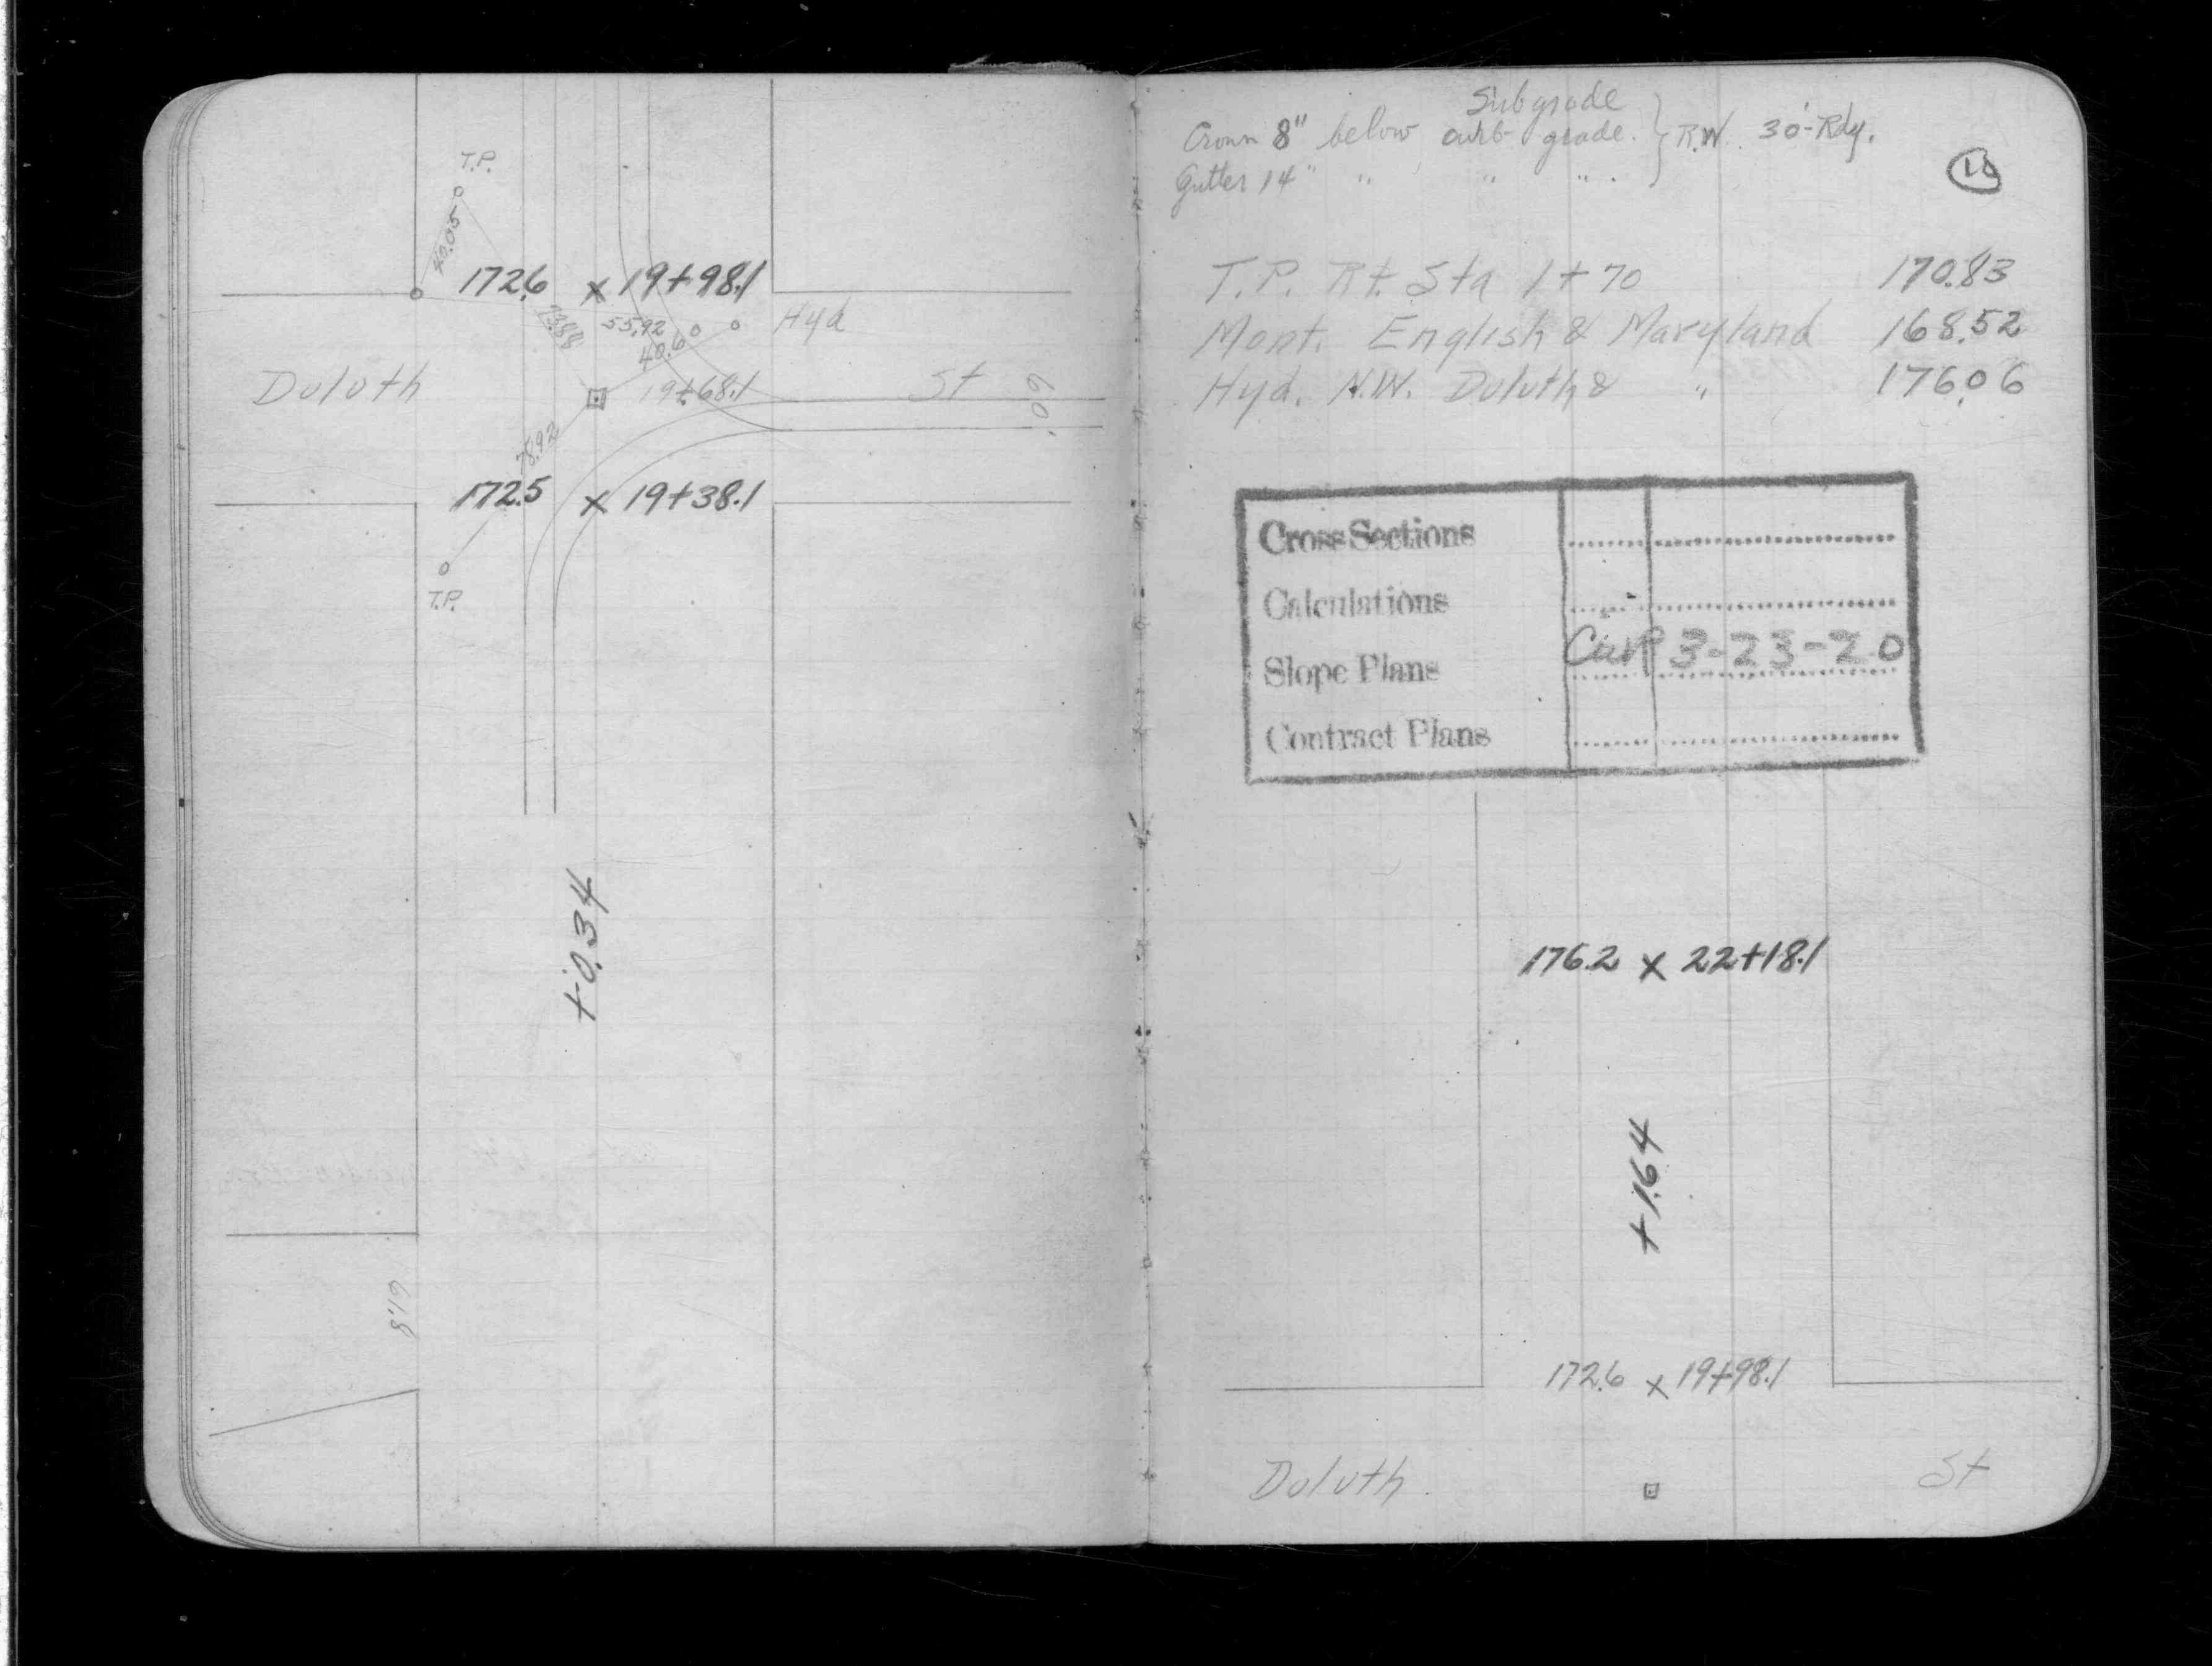 T.P.
40.05
172.6 x 19+98.1
73.88
55.92
40.6
Hyd
Duluth 19+68.1 St 60'
78.92
172.5 x 19+38.1
T.P.
+0.34
61.8
Subgrade
Crown 8" below curb grade. } R.W. 30'-Rdy.
Gutter 14" " " " .
10
T.P. Rt. Sta 1+70 170.83
Mont. English & Maryland 168.52
Hyd. N.W. Duluth & " 176.06
Cross Sections
Calculations
Slope Plans 3-23-20
Contract Plans
176.2 x 22+18.1
+1.64
172.6 x 19+98.1
Duluth St